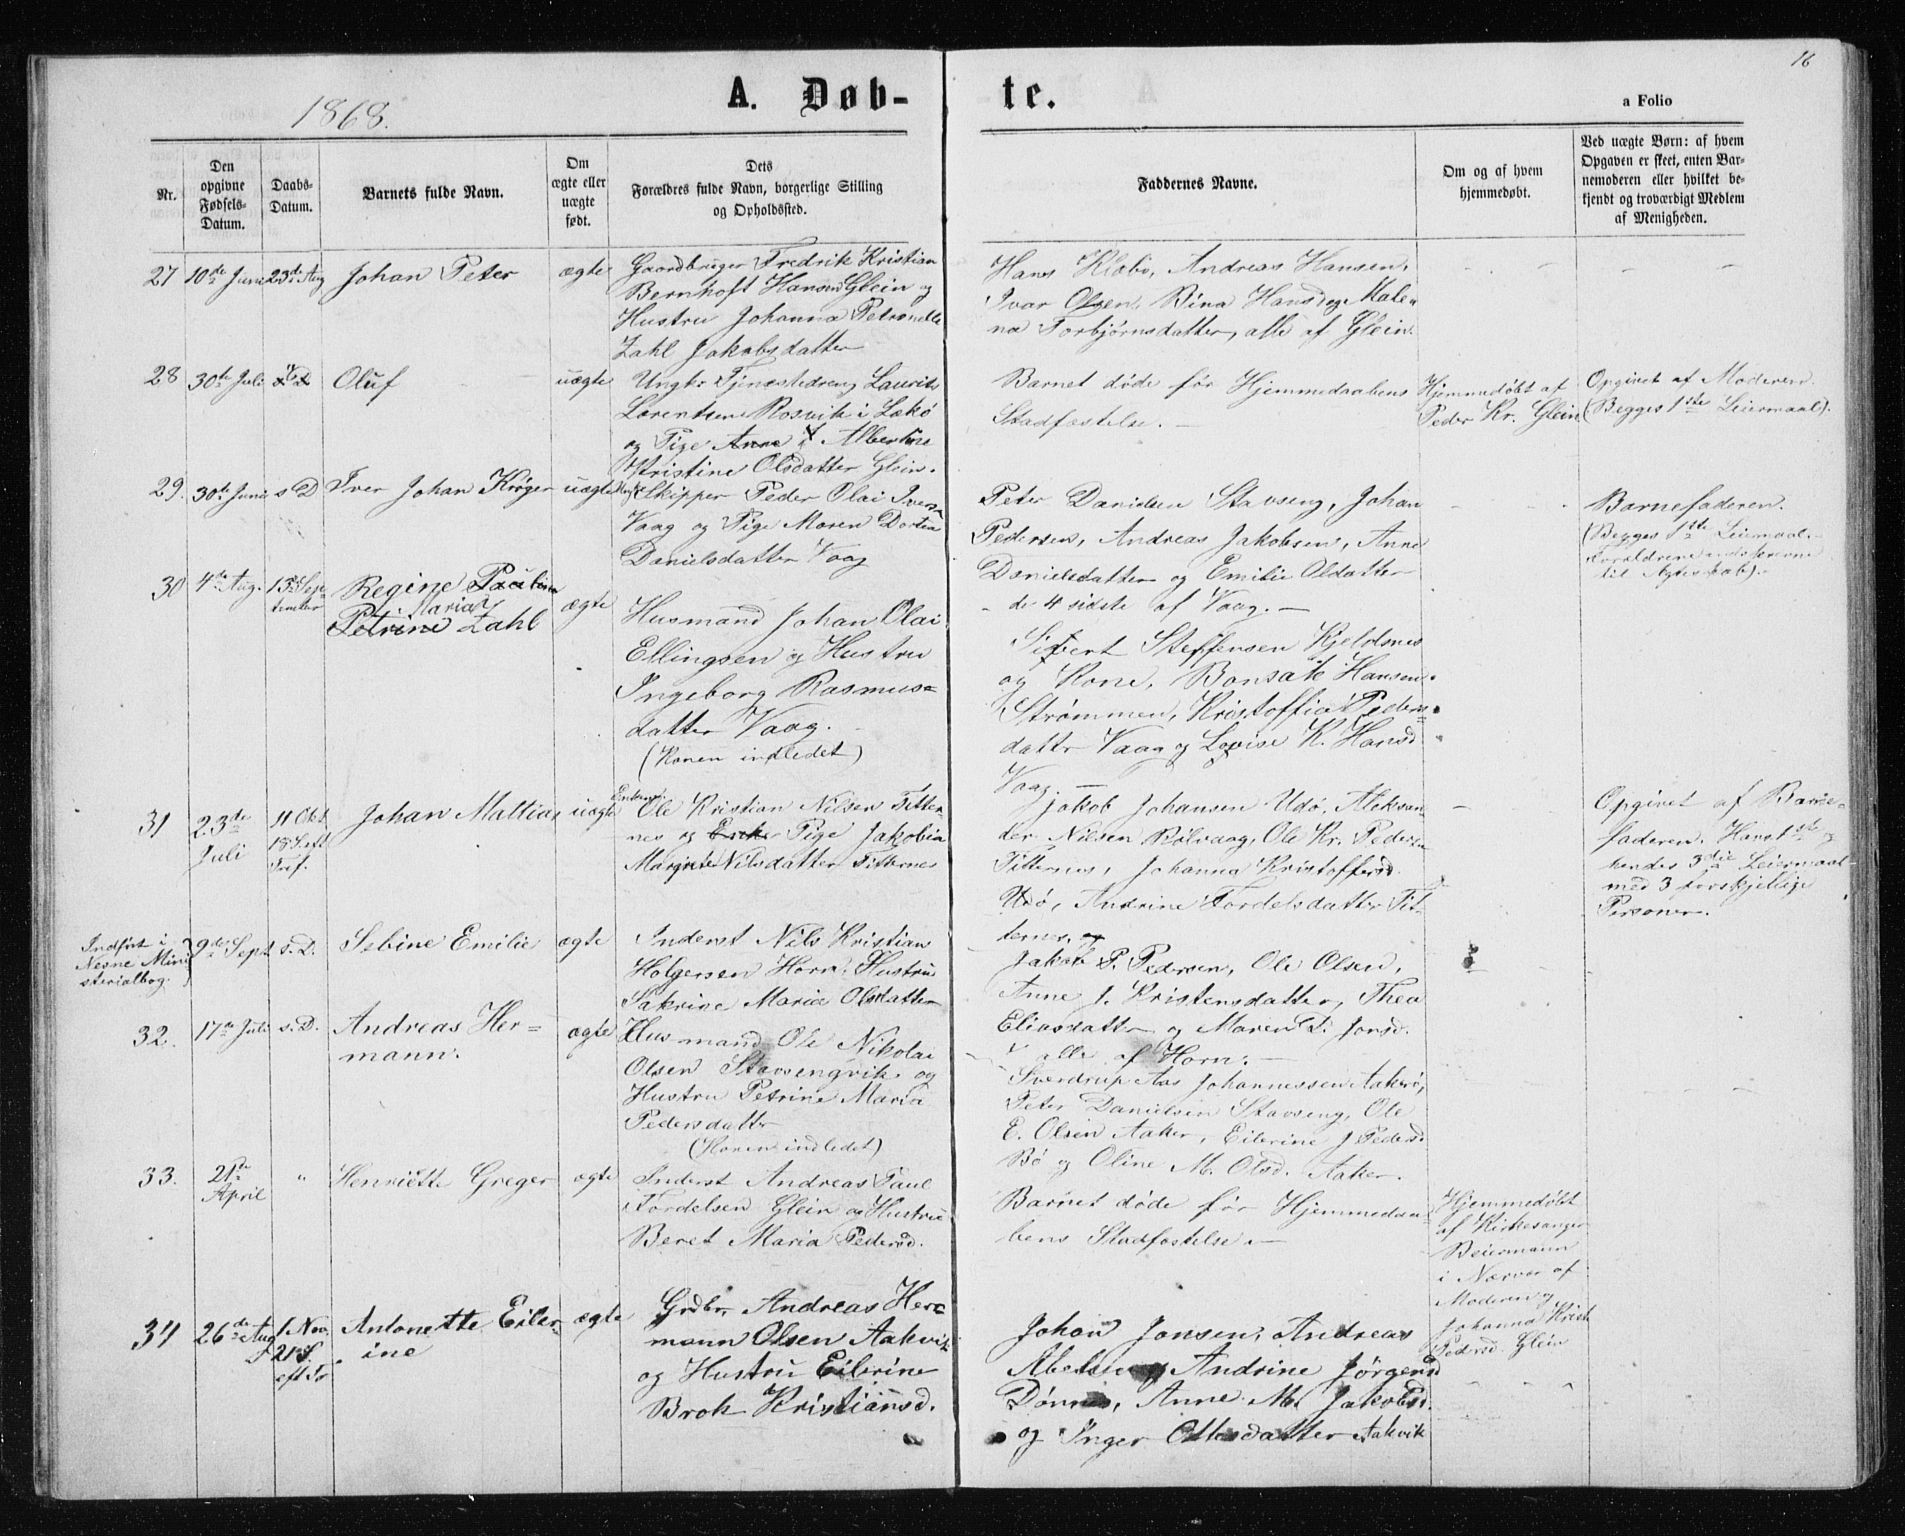 16
1868.
A. Døb-
te.
a Folio
Nr.
Den
opgivne
Fødsels-
Datum.
Daabs-
Datum.
Barnets fulde Navn.
Om
ægte eller
uægte
født.
Dets
Forældres fulde Navn, borgerlige Stilling
og Opholdssted.
Faddernes Navne.
Om og af hvem
hjemmedøbt.
Ved uægte Børn: af hvem
Opgaven er skeet, enten Bar-
nemoderen eller hvilket be-
kjendt og troværdigt Medlem
af Menigheden.
27 10de Juni 23de Aug Johan Peter ægte
Gaardbruger Fredrik Kristian
Bernhoft Hansen Glein og
Hustru Johanna Petronelle
Zahl Jakobsdatter
Hans Klæbo, Andreas Hansen,
Ivar Olsen, Rina Hansd og Male-
na Torbjørnsdatter, alle af Glein.
28 30te Juli Oluf uægte
Ungkr. Tjenestedreng Laurits
Lorentsen Rosvik i Lekø
og Pige Anne Albertine
Kristine Olsdatter Glein.
Barnet døde før Hjemmedaabens
Stadfæstelse.
Hjemmedøbt af
Peder Kr. Glein
Opgivet af Moderen.
(Begges 1ste Leiermaal).
29. 30te Juni s D Iver Johan Krøger uægte
Skipper Peder Olai Iversen
Vaag og Pige Maren Dortea
Danielsdatter Vaag
Peter Danielsen Stavseng, Johan
Pedersen, Andreas Jakobsen, Anne
Danielsdatter og Emilie Olsdatter
de 4 sidste af Vaag.
Barnefaderen.
(Begges 1ste Leiermaal.
Forældrene
til Ægteskab).
30 4de Aug. 13de Sep-
tember
Regine Pauline
Maria
Petrine Zahl
ægte
Husmand Johan Olai
Ellingsen og Hustru
Ingeborg Rasmus-
datter Vaag.
(Konen indledet)
Sifvert Steffensen Kjeldsnes
og Kone, Bonsak Hansen
Strømmen, Kristoffia Peders-
datter Vaag og Lovise K. Hansd.
Vaag
31 23de
Juli
11 Okt
18 S. eft
Tref.
Johan Mattias uægte
Enkemd.
Ole Kristian Nilsen Titter-
nes og Enke Pige Jakobia
Margrete Nilsdatter Titternes
Jakob Johansen Udø, Aleksan-
der Nilsen Bolvaag, Ole Kr. Pedersen
Titternes, Johanna Kristoffersd
Udø, Andrine Tordelsdatter Tit-
ternes.
Opgivet af Barne-
faderen. Hans 1ste og
hendes 3die Leiermaal
med 3 forskjellige
Personer.
Indført i
Nesne Mini-
sterialbog.
9de Sept. s. D. Sebine Emilie ægte
Inderst Nils Kristian
Holgersen Horn. Hustru
Sakrine Maria Olsdatter
Jakob P. Pedersen, Ole Olsen,
Anne J. Kristensdatter, Thea
Eliasdatter og Maren D. Jonsd.
alle af Horn.
32. 17de Juli s. D. Andreas Her-
mann.
ægte
Husmand Ole Nikolai
Olsen Stavsengvik og
Hustru Petrine Maria
Pedersdatter
(Konen indledet)
Sverdrup Aas Johannessen Aakerø,
Peter Danielsen Stavseng, Ole
E. Olsen Aaker, Eilerine J Pedersd
Bø og Oline M. Olsd. Aaker.
33. 21de
April
" Henriette Greger ægte
Inderst Andreas Paul
Tordelsen Glein og Hustru
Beret Maria Pedersd.
Barnet døde før Hjemmedaa-
bens Stadfæstelse
Hjemmedøbt
af Kirkesanger
Beiermann
i Nærvær af
Moderen og
Johanna Krist.
Pedersd. Glein
34 26de Aug 1 Nov.
21 S.
eft Tr.
Antonette Eiler-
ine
ægte
Grdbr. Andreas Her-
mann Olsen Aakvik
og Hustru Eilerine
Brok Kristiansd.
Johan Jonsen, Andreas
Abelsen og Andrine Jørgensd
Dønnes, Anne M. Jakobsd.
og Inger Ottesdatter Aakvik